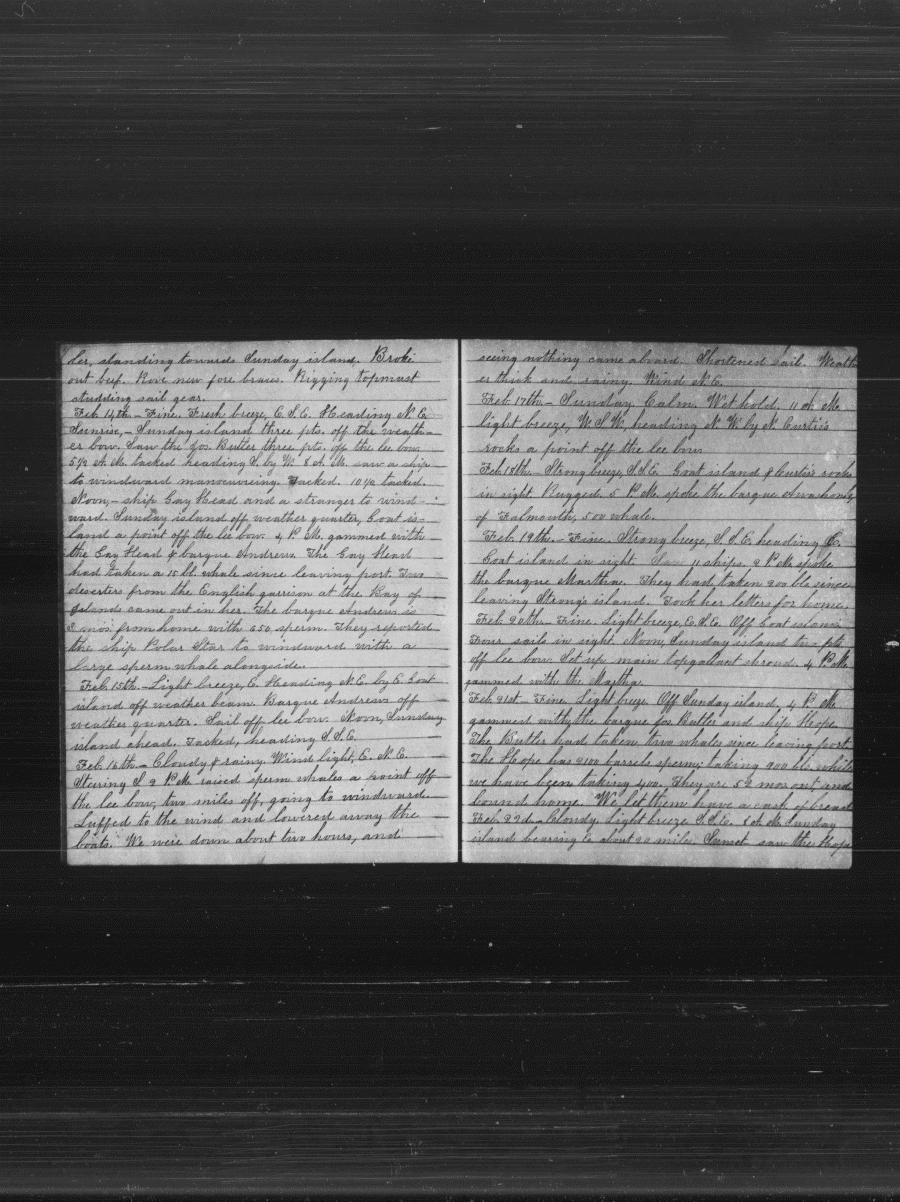 der, standing towards Sunday island. Broke
out beef. Rove new fore braces. Rigging topmast
studding sail gear.
Feb. 14th.- Fine. Fresh breeze, E.S.E. Heading N.E.
Sunrise,- Sunday island three pts. off the weath-
er bow. Saw the Jos. Butler three pts. off the lee bow.
5½ A.M. tacked heading S. by W. 8 A.M. saw a ship
to windward manoeuvering. Tacked. 10½ tacked.
Noon,- ship Gay Head and a stranger to wind-
ward. Sunday island off weather quarter, Goat is-
land a point off the lee bow. 4 P.M. gammed with
the Gay Head & barque Andrews. The Gay Head
had taken a 15 bl. whale since leaving port. Two
deserters from the English garrison at the Bay of
Islands came out in her. The barque Andrews is
8 mos. from home with 650 sperm. They reported
the ship Polar Star to windward with a
large sperm whale alongside.
Feb. 15th.- Light breeze, E. Heading N.E. by E. Goat
island off weather beam. Barque Andrews off
weather quarter. Sail off lee bow. Noon, Sunday
island ahead. Tacked, heading S.S.E.
Feb. 16th.- Cloudy & rainy. Wind light, E.N.E.
Steering S. 2 P.M. raised sperm whales a point off
the lee bow, two miles off, going to windward.
Luffed to the wind and lowered away the
boats. We were down about two hours, and
seeing nothing came aboard. Shortened sail. Weath-
er thick and rainy. Wind N.E.
Feb. 17th.- Sunday. Calm. Wet hold. 11 A.M.
light breeze, W.S.W. heading N.W. by N. Curtis
rocks a point off the lee bow.
Feb. 18th.- Strong breeze, S.S.E. Goat island & Curtis rocks
in sight. Rugged. 5 P.M. spoke the barque Awashonks
of Falmouth, 500 whale.
Feb. 19th.- Fine. Strong breeze, S.S.E. heading E.
Goat island in sight. Saw 11 ships. 2 P.M. spoke
the barque Martha. They had taken 200 bls since
leaving Strong's island. Took her letters for home.
Feb. 20th.- Fine. Light breeze, E.S.E. Off Goat island
Four sails in sight. Noon, Sunday island two pts
off lee bow. Set up main topgallant shroud. 4 P.M.
gammed with the Martha.
Feb. 21st.- Fine. Light breeze. Off Sunday island, 4 P.M.
gammed with the barque Jos. Butler and ship Hope.
The Butler had taken two whales since leaving port.
The Hope has 2100 barrels sperm; taking 900 bls. while
we have been taking 400. They are 52 mos. out and
bound home. We let them have a cask of bread
Feb. 22d.- Cloudy. Light breeze S.S.E. 8 A.M. Sunday
island bearing E. about 20 miles. Sunset saw the Hope